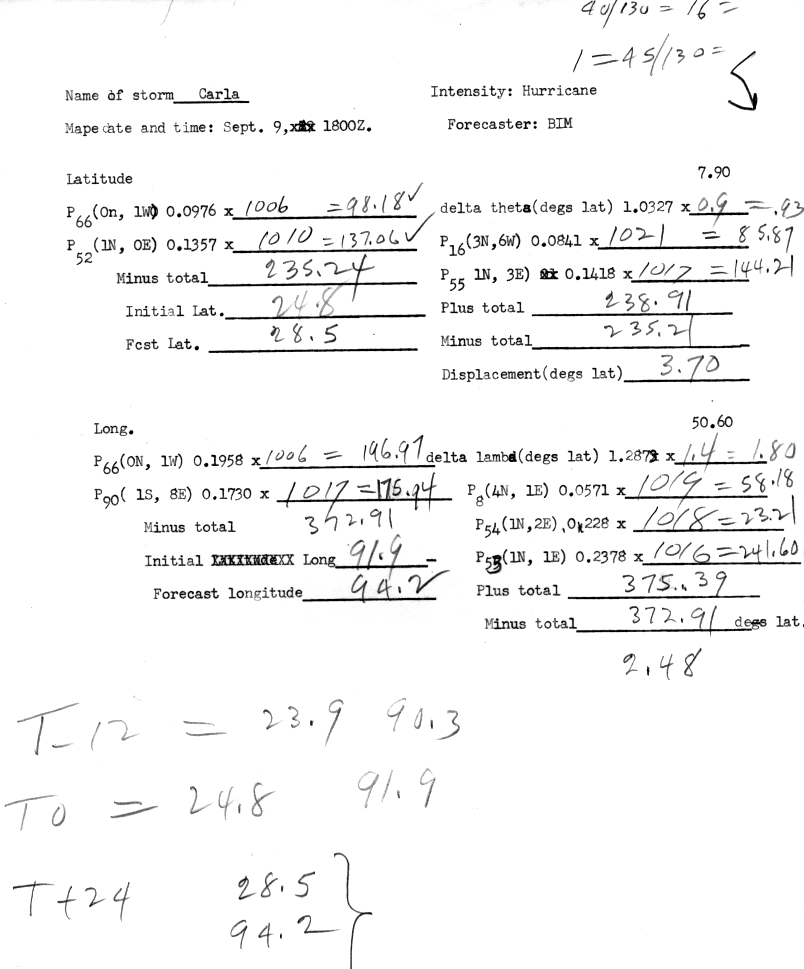 40/130 = 16 =
1 = 45/130 =
Name of storm Carla Intensity: Hurricane
Mape date and time: Sept. 9, 1800Z. Forecaster: BIM
Latitude 7.90
P66(0n, 1W) 0.0976 x 1006 = 98.18 ✓ delta theta(degs lat) 1.0327 x 0.9 = .93
P52(1N, 0E) 0.1357 x 1010 = 137.06 ✓ P16(3N,6W) 0.0841 x 1021 = 85.87
Minus total 235.24 P55 1N, 3E) 0.1418 x 1017 = 144.21
Initial Lat. 24.8 Plus total 238.91
Fcst Lat. 28.5 Minus total 235.21
Displacement(degs lat) 3.70
Long. 50.60
P66(0N, 1W) 0.1958 x 1006 = 196.97 delta lambda(degs lat) 1.2879 x 1.4 = 1.80
P90( 1S, 8E) 0.1730 x 1017 = 175.94 P8(4N, 1E) 0.0571 x 1019 = 58.18
Minus total 372.91 P54(1N,2E) 0.0228 x 1018 = 23.21
Initial Long 91.9 P53(1N, 1E) 0.2378 x 1016 = 241.60
Forecast longitude 94.2 Plus total 375.39
Minus total 372.91 degs lat.
2.48
T-12 = 23.9 90.3
T0 = 24.8 91.9
T+24 28.5
94.2